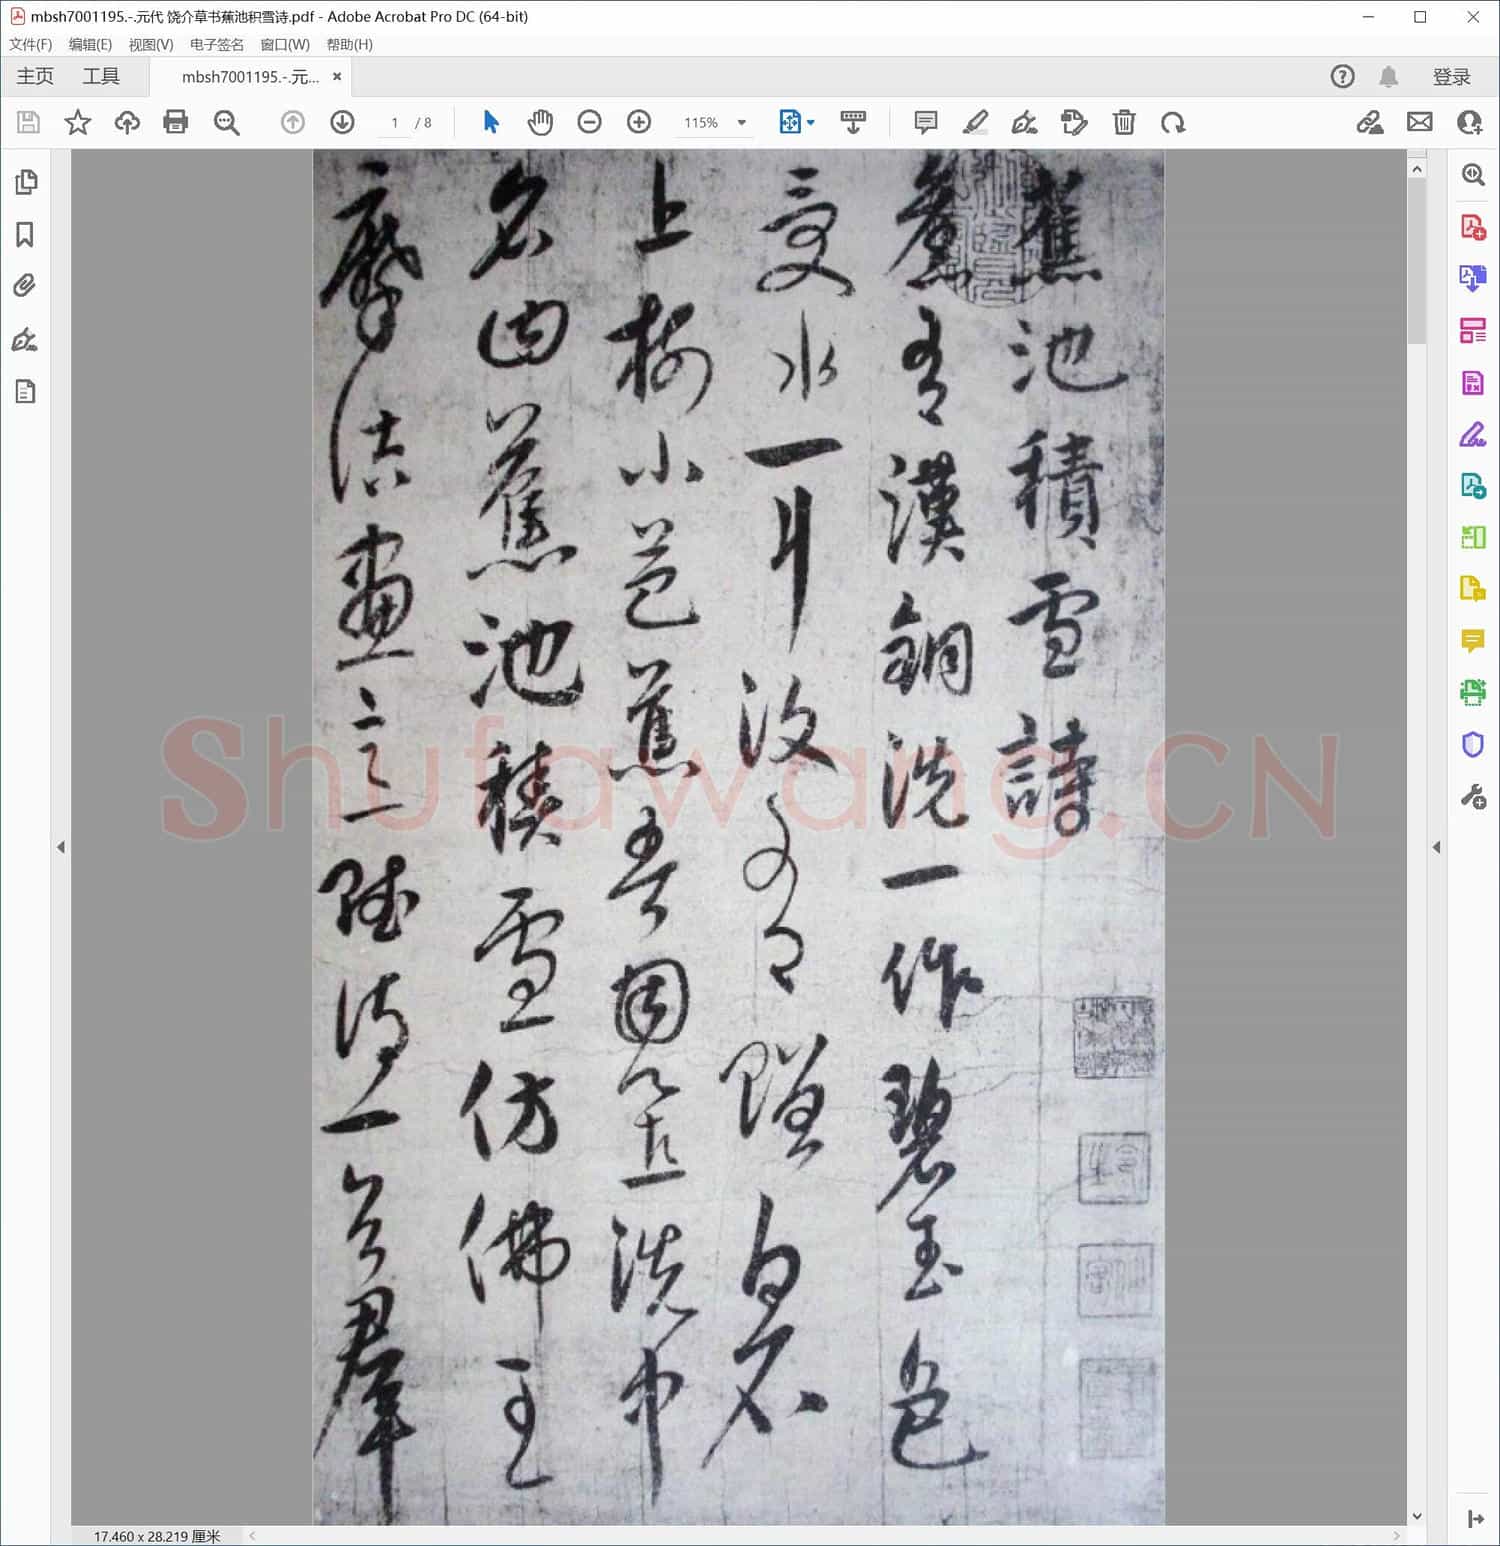 mbsh7001195.-.元代 饶介草书蕉池积雪诗.pdf - Adobe Acrobat Pro DC (64-bit)
文件(F) 编辑(E) 视图(V) 电子签名 窗口(W) 帮助(H)
主页 工具 mbsh7001195.-.元... × 登录
1 / 8 115%
蕉池積雪詩
有漢銅洗一作碧玉色
受水一斗 有贈白石
上樹小芭蕉吾因并置洗中
名曰蕉池積雪仿佛王
摩詰畫 群
Shufawang.CN
17.460 x 28.219 厘米